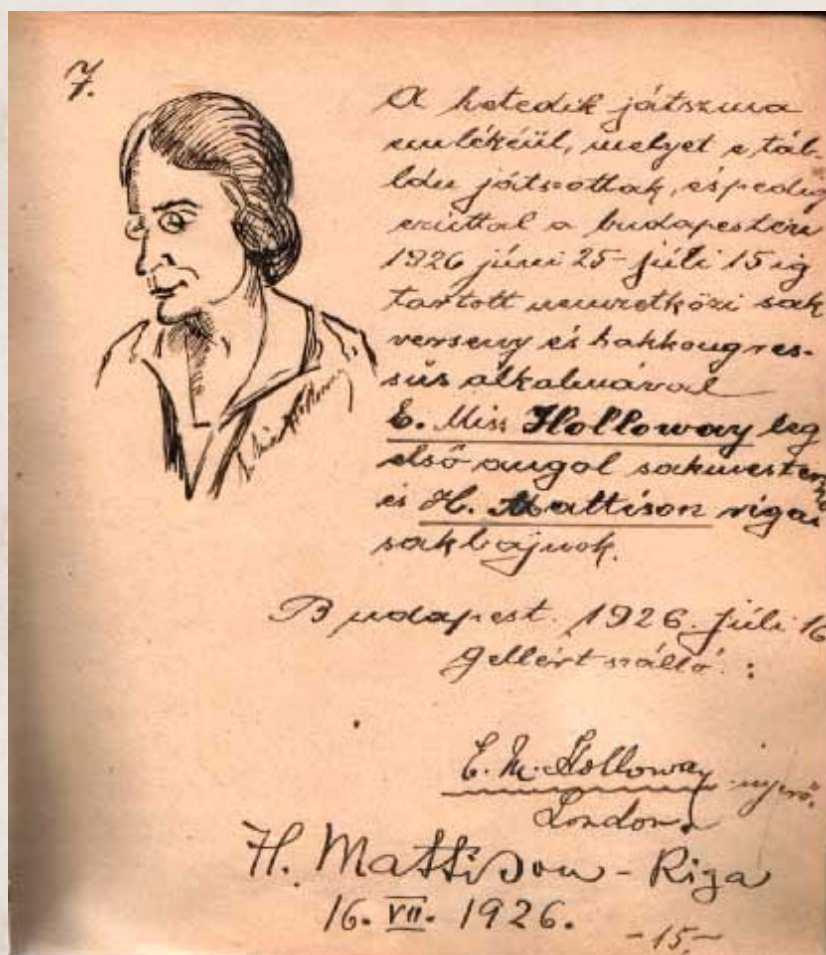 7.
A hetedik játszma
emlékéül, melyet e táb-
lán játszottak, és pedig
ezúttal a budapesten
1926 júni 25-júli 15 ig
tartott nemzetközi sak
verseny és sakkongres-
sus alkalmával
E. Miss Holloway leg
első angol sakmester
és H. Mattison rigai
sakbajnok.
Budapest. 1926. júli 16
Gellért szálló. :
E. M. Holloway nyerő.
London.
H. Mattison - Riga
16. VII. 1926.
-15.-